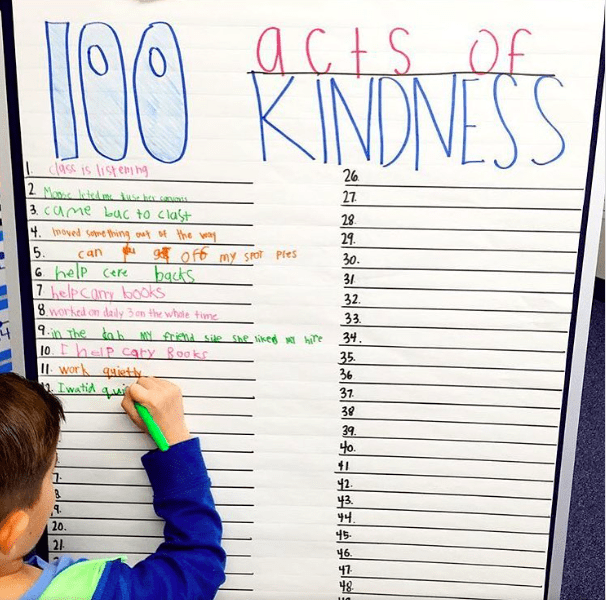 100 acts of
KINDNESS
1. class is listening
2. me to use her crayons
3. came bac to clast
4. moved something out of the way
5. can off my spot ples
6. help cere backs
7. help carry books
8. worked on daily 3 on the whole time
9. in the my friend she liked my hire
10. I help cary Books
11. work quietly
12. I watid
20.
21.
26.
27.
28.
29.
30.
31
32.
33.
34.
35.
36
37.
38
39.
40.
41
42.
43.
44.
45.
46.
47.
48.